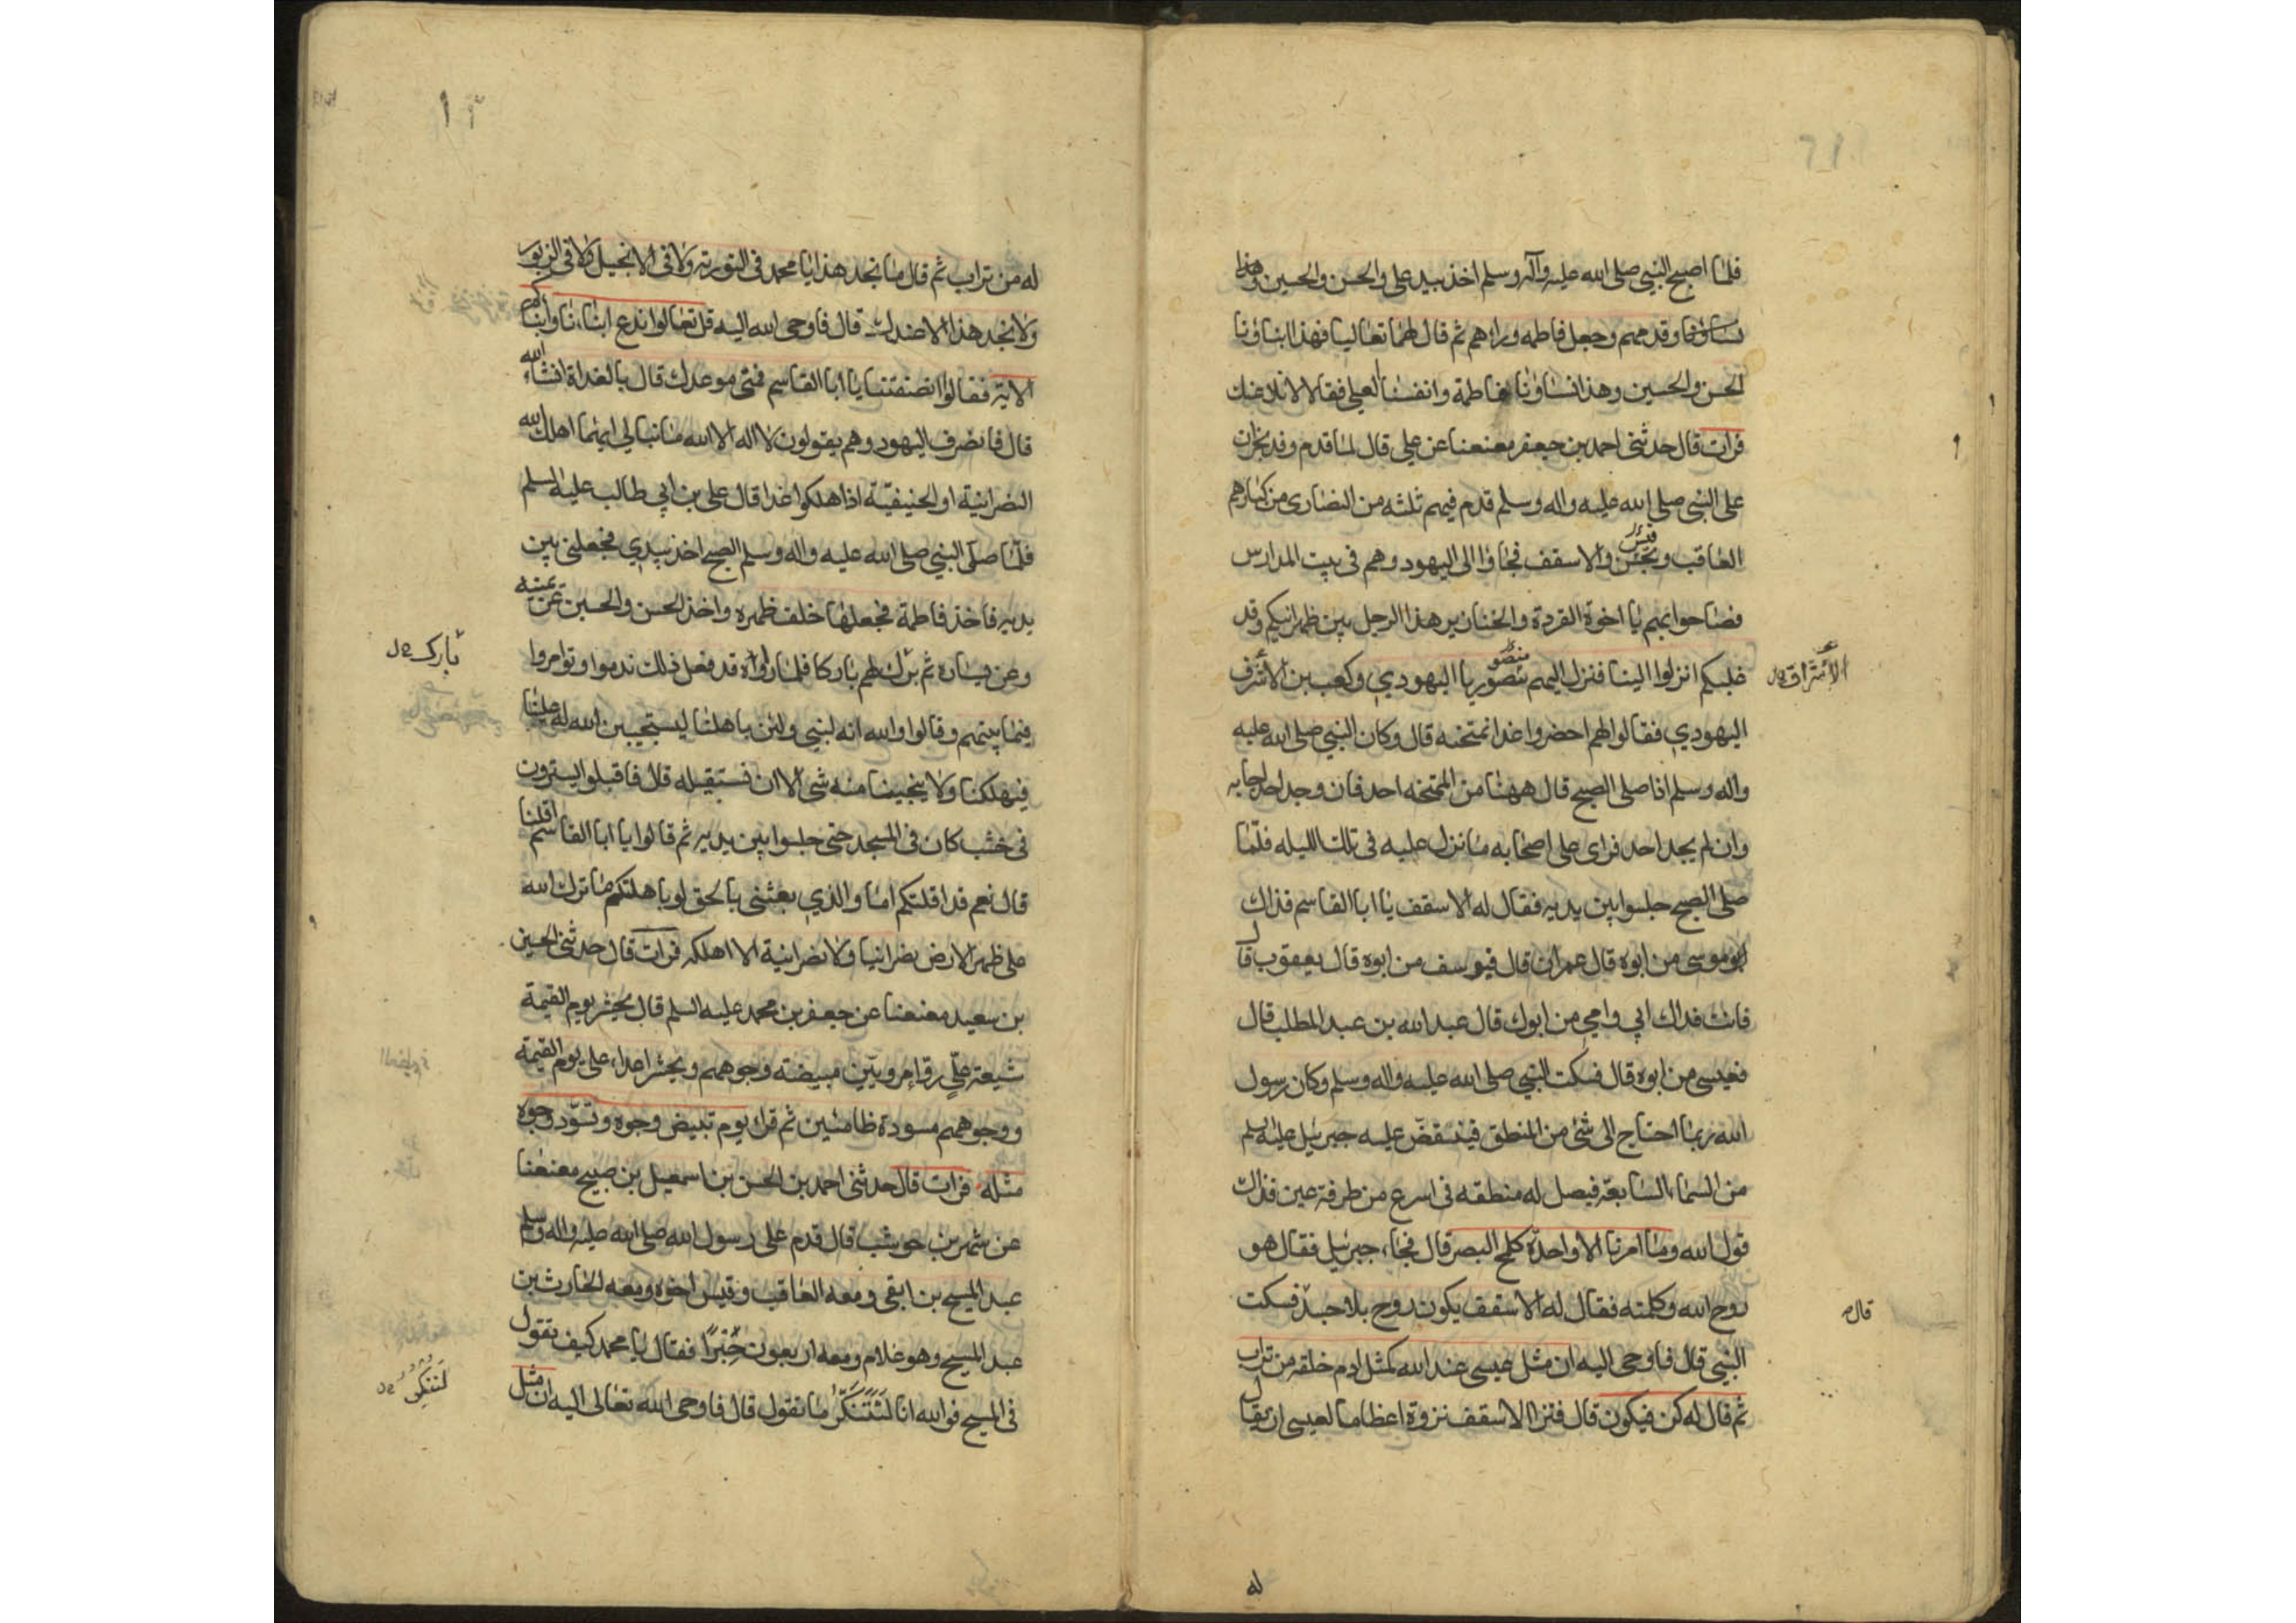 فلما اصبح النبي صلى الله عليه وآله وسلم اخذ بيد علي والحسن والحسين وهذا
نساؤنا وقدمهم وجعل فاطمه وراءهم ثم قال لهما تعاليا فهذا ابناؤنا
الحسن والحسين وهذا نساؤنا لفاطمة وانفسنا لعلي فقالا لا نلاعنك
فرات قال حدثنى احمد بن جعفر معنعنا عن علي قال لما قدم وفد نجران
على النبي صلى الله عليه واله وسلم قدم فيهم ثلثه من النصارى من كبارهم
العاقب و قيس والاسقف فجاؤا الى اليهود وهم فى بيت المدارس
فصاحوا بهم يا اخوة القردة والخنازير هذا الرجل بين ظهرانيكم وقد
غلبكم انزلوا الينا فنزل اليهم منصور يا اليهودي وكعب بن الاشرف
الاشراف
اليهودي فقالوا لهم احضروا غدا نمتحنه قال وكان النبي صلى الله عليه
واله وسلم اذا صلى الصبح قال ههنا من الممتحنه احد فان وجد احدا اجابه
وان لم يجد احد قراى على اصحابه ما نزل عليه فى تلك الليله فلما
صلى الصبح جلسوا بين يديه فقال له الاسقف يا ابا القاسم فذاك
ابو موسى من ابوه قال عمران قال فيوسف من ابوه قال يعقوب قال
فانت فداك ابي وامي من ابوك قال عبد الله بن عبد المطلب قال
فعيسى من ابوه قال فسكت النبي صلى الله عليه واله وسلم وكان رسول
الله ربما احتاج الى شئ من المنطق فينقض عليه جبرئيل عليه السلم
من السماء السابعة فيصل له منطقه فى اسرع من طرفة عين فذاك
قول الله وما امرنا الا واحدة كلمح البصر قال فجاء جبرئيل فقال هو
روح الله وكلمته فقال له الاسقف يكون روح بلا جسد فسكت
قال
النبي قال فاوحى اليه ان مثل عيسى عند الله كمثل ادم خلقه من تراب
ثم قال له كن فيكون قال فنزا الاسقف نزوة اعظاما لعيسى ان يقال
له
١٢
له من تراب ثم قال ما نجد هذا يا محمد فى التورية ولا فى الانجيل ولا فى الزبور
ولا نجد هذا الا عندك قال فاوحى الله اليه قل تعالوا ندع ابناءنا وابناءكم
الاية فقالوا انصفتنا يا ابا القاسم فمتى موعدك قال بالغداة انشاء الله
قال فانصرف اليهود وهم يقولون لا اله الا الله ما نبالي ايهما اهلك الله
النصرانية او الحنيفية اذا هلكوا غدا قال علي بن ابي طالب عليه السلم
فلما صلى النبي صلى الله عليه واله وسلم الصبح اخذ بيدي فجعلنى بين
يديه فاخذ فاطمة فجعلها خلف ظهره واخذ الحسن والحسين عن يمينه
وعن يساره ثم برك لهم باركا فلما راوه قد فعل ذلك ندموا وتوامروا
بارك
فيما بينهم وقالوا والله انه لنبي ولئن باهلنا ليستجيبن الله له علينا
فيهلكنا ولا ينجينا منه شى الا ان نستقيله قال فاقبلوا يسترون
فى خشب كان فى المسجد حتى جلسوا بين يديه ثم قالوا يا ابا القاسم اقلنا
قال نعم قد اقلتكم اما والذي بعثنى بالحق لو باهلتكم ما ترك الله
على ظهر الارض نصرانيا ولا نصرانية الا اهلكه فرات قال حدثنى الحسين
بن سعيد معنعنا عن جعفر بن محمد عليه السلم قال يحشر يوم القيمة
شيعة علي رواء مرويين مبيضة وجوههم ويحشر اعداء على يوم القيمة
ووجوههم مسودة ظامئين ثم قرا يوم تبيض وجوه وتسود وجوه
مثله فرات قال حدثنى احمد بن الحسن بن اسمعيل بن صبيح معنعنا
عن شهر بن حوشب قال قدم على رسول الله صلى الله عليه واله وسلم
عبد المسيح بن ابقى ومعه العاقب وقيس اخوه ومعه الحارث بن
عبد المسيح وهو غلام ومعه اربعون حبرا فقال يا محمد كيف تقول
فى المسيح فوالله انا لنتنكر ما تقول قال فاوحى الله تعالى اليه ان مثل
لننكر